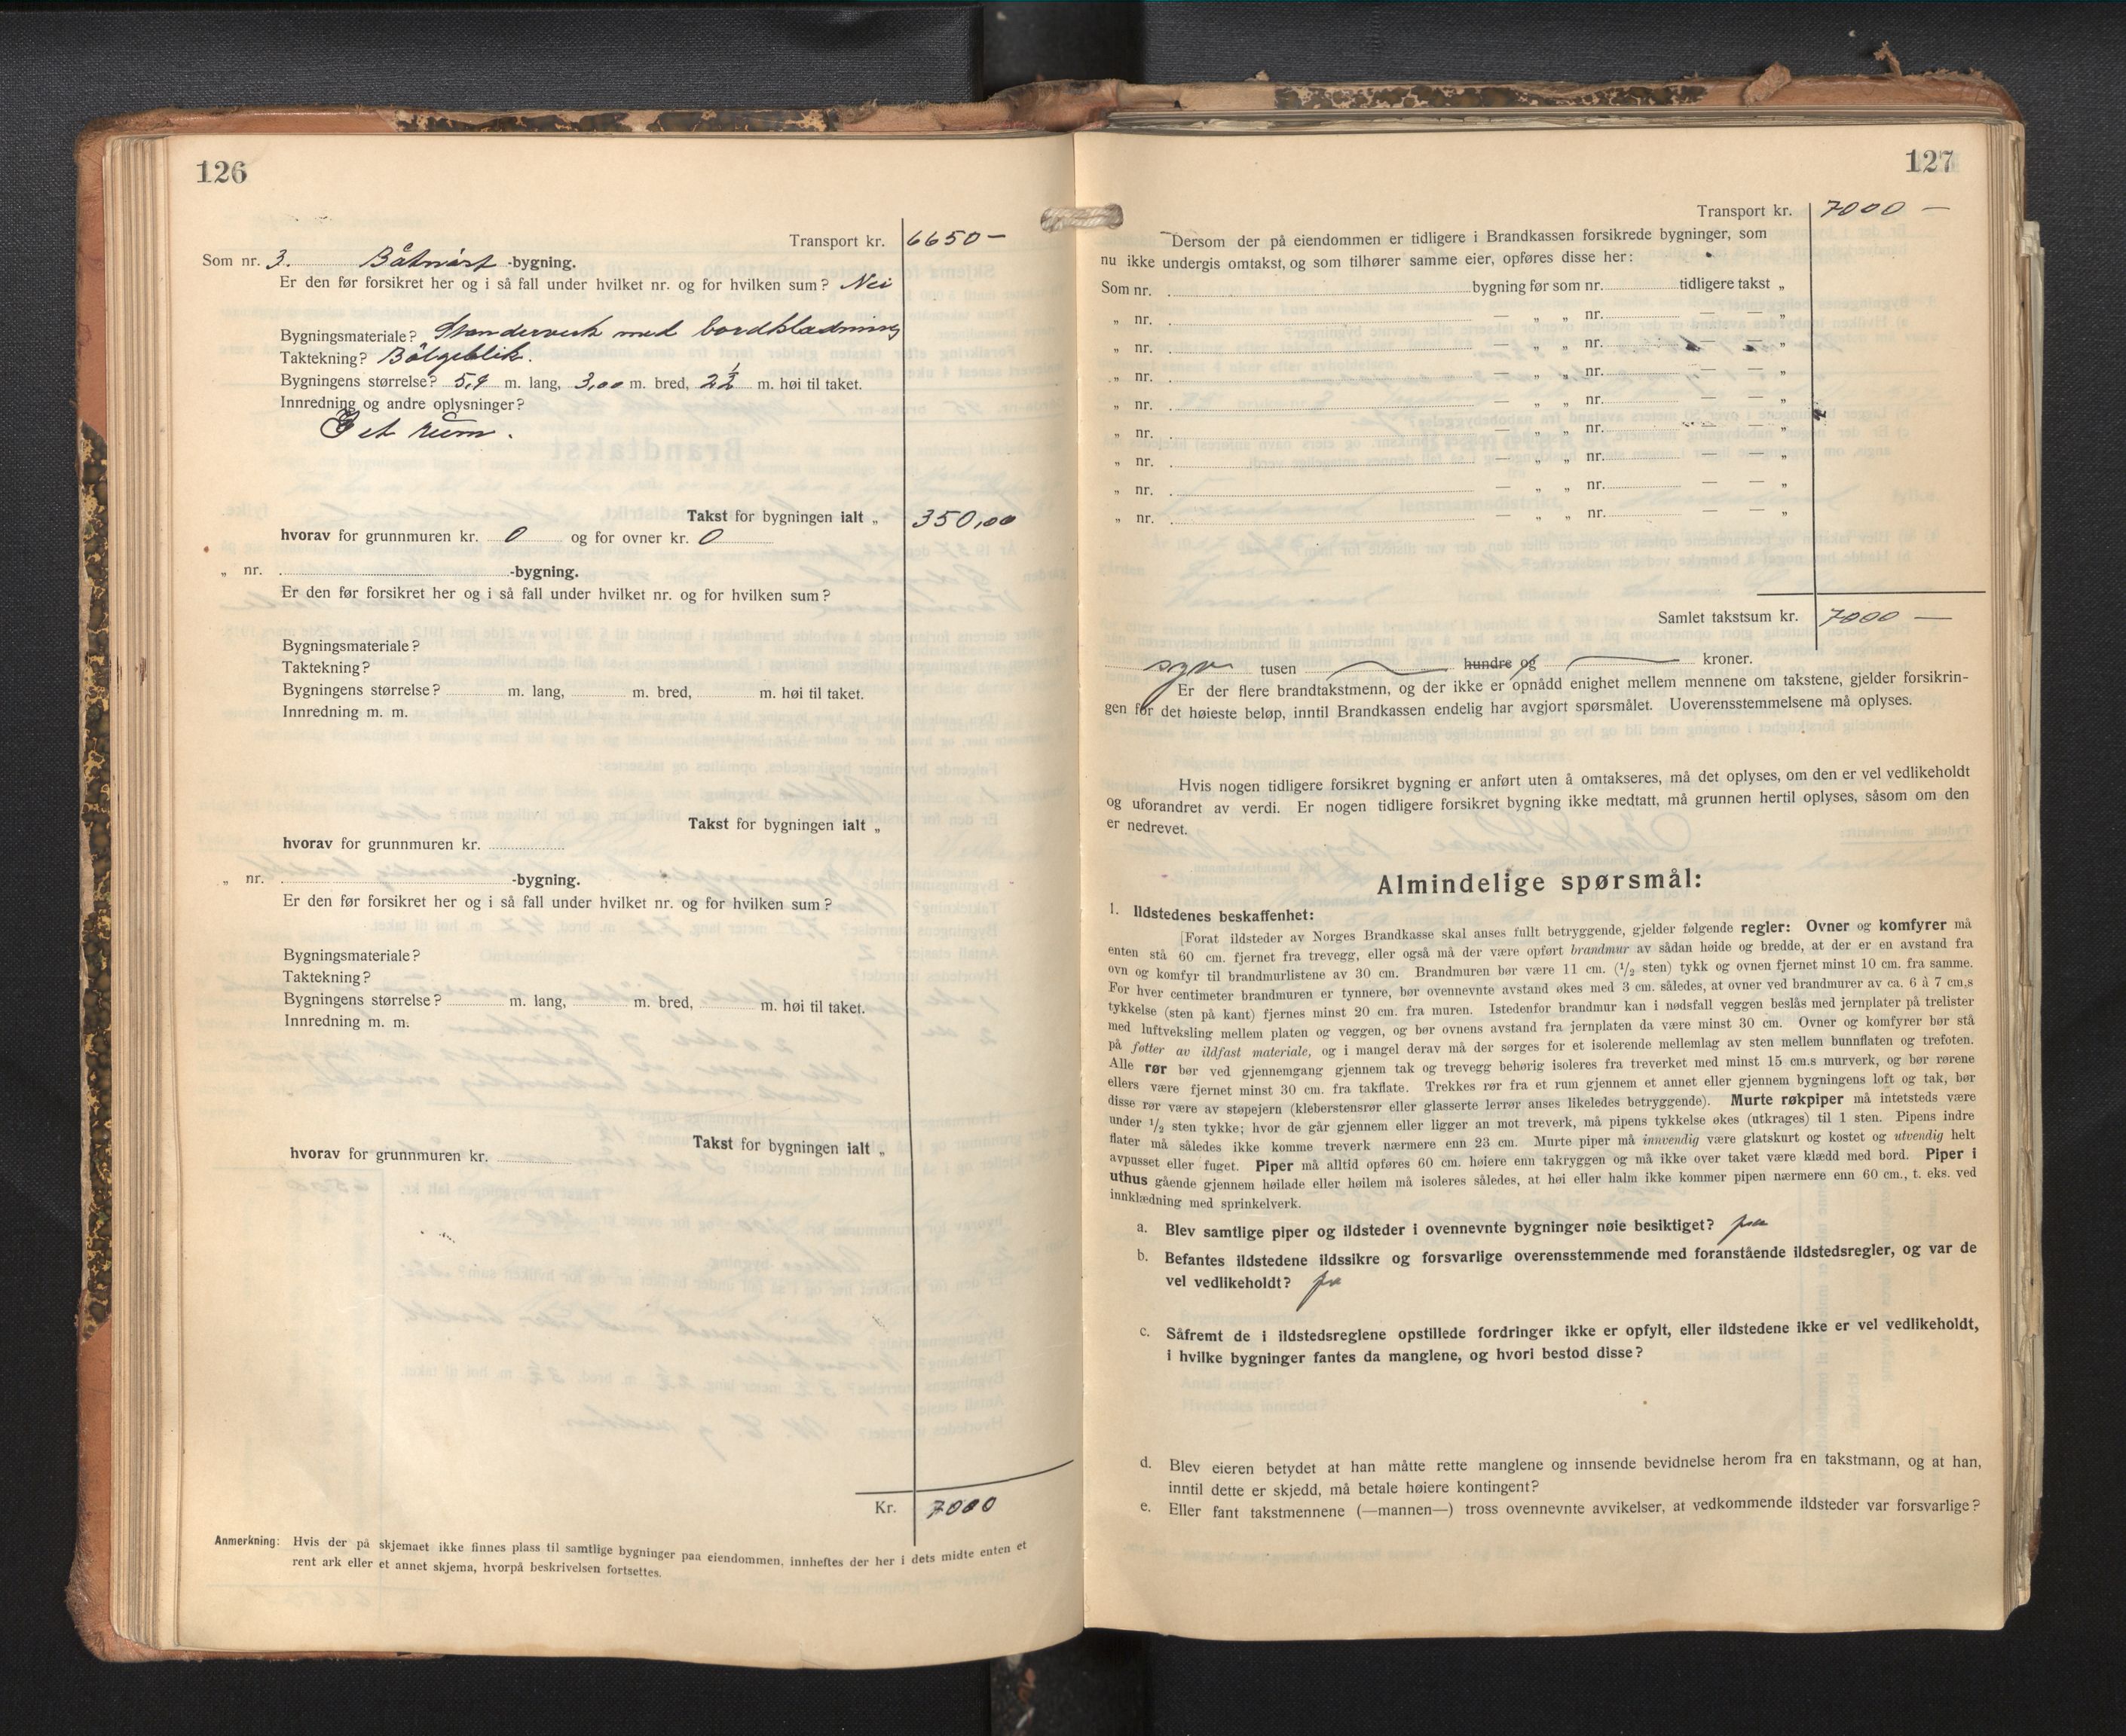 126
Transport kr. 6650 —
Som nr. 3. Båtnåst -bygning.
Er den før forsikret her og i så fall under hvilket nr. og for hvilken sum? Nei
Bygningsmateriale? Standerverk med bordklædning
Taktekning? Bölgeblik.
Bygningens størrelse? 5,9 m. lang, 3,00 m. bred, 2½ m. høi til taket.
Innredning og andre oplysninger?
Et rum.
Takst for bygningen ialt „ 350,00
hvorav for grunnmuren kr. 0 og for ovner kr. 0
„ nr. -bygning.
Er den før forsikret her og i så fall under hvilket nr. og for hvilken sum?
Bygningsmateriale?
Taktekning?
Bygningens størrelse? m. lang, m. bred, m. høi til taket.
Innredning m. m.
Takst for bygningen ialt „
hvorav for grunnmuren kr.
„ nr. -bygning.
Er den før forsikret her og i så fall under hvilket nr. og for hvilken sum?
Bygningsmateriale?
Taktekning?
Bygningens størrelse? m. lang, m. bred, m. høi til taket.
Innredning m. m.
Takst for bygningen ialt „
hvorav for grunnmuren kr.
Kr. 7000
Anmerkning: Hvis der på skjemaet ikke finnes plass til samtlige bygninger paa eiendommen, innheftes der her i dets midte enten et
rent ark eller et annet skjema, hvorpå beskrivelsen fortsettes.
127
Transport kr. 7000 —
Dersom der på eiendommen er tidligere i Brandkassen forsikrede bygninger, som
nu ikke undergis omtakst, og som tilhører samme eier, opføres disse her:
Som nr. bygning før som nr. tidligere takst „
„ nr. — „ „ nr. — — „
„ nr. — „ „ nr. — — „
„ nr. — „ „ nr. — — „
„ nr. — „ „ nr. — — „
„ nr. — „ „ nr. — — „
„ nr. — „ „ nr. — — „
„ nr. — „ „ nr. — — „
„ nr. — „ „ nr. — — „
Samlet takstsum kr. 7000 —
syv tusen — hundre og — kroner.
Er der flere brandtakstmenn, og der ikke er opnådd enighet mellem mennene om takstene, gjelder forsikrin-
gen for det høieste beløp, inntil Brandkassen endelig har avgjort spørsmålet. Uoverensstemmelsene må oplyses.
Hvis nogen tidligere forsikret bygning er anført uten å omtakseres, må det oplyses, om den er vel vedlikeholdt
og uforandret av verdi. Er nogen tidligere forsikret bygning ikke medtatt, må grunnen hertil oplyses, såsom om den
er nedrevet.
Almindelige spørsmål:
1. Ildstedenes beskaffenhet:
[Forat ildsteder av Norges Brandkasse skal anses fullt betryggende, gjelder følgende regler: Ovner og komfyrer må
enten stå 60 cm. fjernet fra trevegg, eller også må der være opført brandmur av sådan høide og bredde, at der er en avstand fra
ovn og komfyr til brandmurlistene av 30 cm. Brandmuren bør være 11 cm. (1/2 sten) tykk og ovnen fjernet minst 10 cm. fra samme.
For hver centimeter brandmuren er tynnere, bør ovennevnte avstand økes med 3 cm. således, at ovner ved brandmurer av ca. 6 à 7 cm,s
tykkelse (sten på kant) fjernes minst 20 cm. fra muren. Istedenfor brandmur kan i nødsfall veggen beslås med jernplater på trelister
med luftveksling mellem platen og veggen, og bør ovnens avstand fra jernplaten da være minst 30 cm. Ovner og komfyrer bør stå
på føtter av ildfast materiale, og i mangel derav må der sørges for et isolerende mellemlag av sten mellem bunnflaten og trefoten.
Alle rør bør ved gjennemgang gjennem tak og trevegg behørig isoleres fra treverket med minst 15 cm.s murverk, og bør rørene
ellers være fjernet minst 30 cm. fra takflate. Trekkes rør fra et rum gjennem et annet eller gjennem bygningens loft og tak, bør
disse rør være av støpejern (kleberstensrør eller glasserte lerrør anses likeledes betryggende). Murte røkpiper må intetsteds være
under 1/2 sten tykke; hvor de går gjennem eller ligger an mot treverk, må pipens tykkelse økes (utkrages) til 1 sten. Pipens indre
flater må således ikke komme treverk nærmere enn 23 cm. Murte piper må innvendig være glatskurt og kostet og utvendig helt
avpusset eller fuget. Piper må alltid opføres 60 cm. høiere enn takryggen og må ikke over taket være klædd med bord. Piper i
uthus gående gjennem høilade eller høilem må isoleres således, at høi eller halm ikke kommer pipen nærmere enn 60 cm., t. eks. ved
innklædning med sprinkelverk.
a. Blev samtlige piper og ildsteder i ovennevnte bygninger nøie besiktiget? jaa
b. Befantes ildstedene ildssikre og forsvarlige overensstemmende med foranstående ildstedsregler, og var de
vel vedlikeholdt? ja
c. Såfremt de i ildstedsreglene opstillede fordringer ikke er opfylt, eller ildstedene ikke er vel vedlikeholdt,
i hvilke bygninger fantes da manglene, og hvori bestod disse?
d. Blev eieren betydet at han måtte rette manglene og innsende bevidnelse herom fra en takstmann, og at han,
inntil dette er skjedd, må betale høiere kontingent?
e. Eller fant takstmennene (—mannen—) tross ovennevnte avvikelser, at vedkommende ildsteder var forsvarlige?